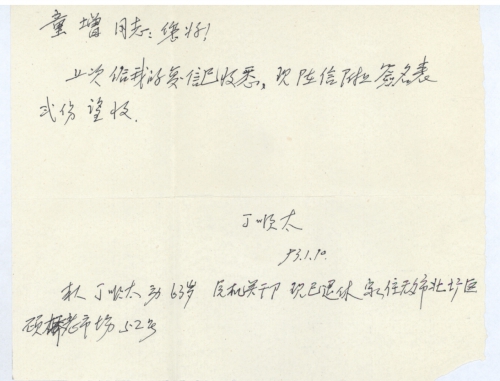 童增同志：您好！
上次给我的复信已收悉，现随信附上签名表
弍份望收.
丁顺太
93.1.10.
我 丁顺太 男 63岁 民机关干 现已退休 家住无锡北圩区
硕 老市场 52号